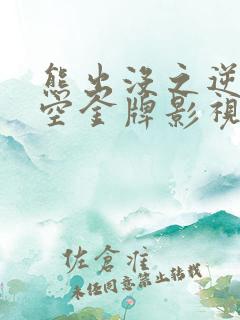 熊出没之逆
空金牌影視
佐倉淮
未经同意禁止转载